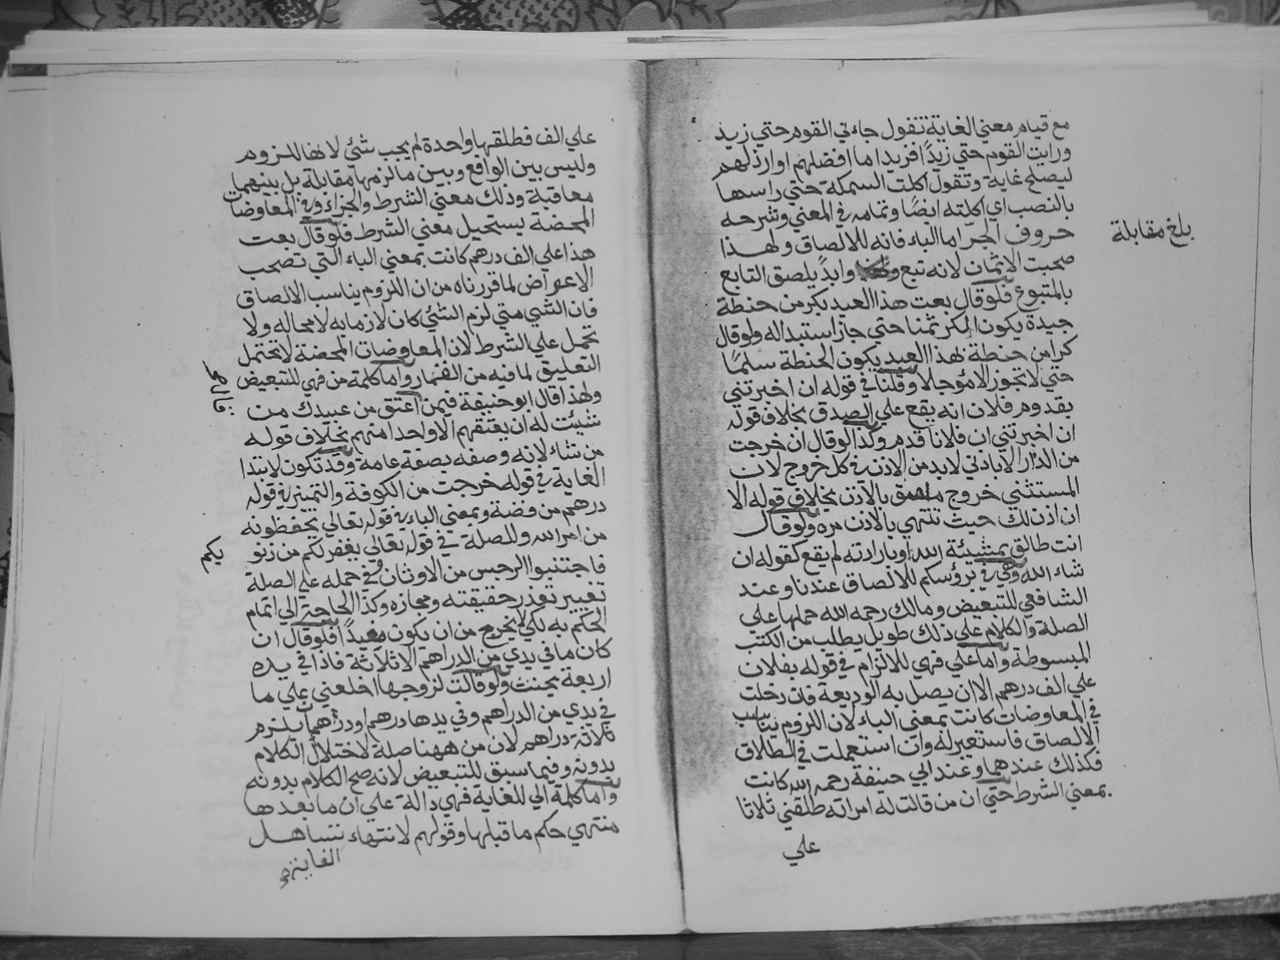 مع قيام معني الغاية تقول جاءتي القوم حتي زيد
ورايت القوم حتي زيدًا فزيد اما افضلهم او ارذلهم
ليصلح غاية وتقول اكلت السمكة حتي راسها
بالنصب اي اكلته ايضًا وتمامه في المعني وشرحه
حروف الجر اما الباء فانه للالصاق ولهذا
صحبت الاثمان لانه تبع وابدًا يلصق التابع
بالمتبوع فلو قال بعت هذا العبد بكر من حنطة
جيدة يكون الكر ثمنا حتي جاز استبداله ولو قال
كرا من حنطة بهذا العبد يكون الحنطة سلمًا
حتي لا تجوز الا مؤجلا وقلنا في قوله ان اخبرتني
بقدوم فلان انه يقع علي الصدق بخلاف قوله
ان اخبرتني ان فلانا قدم وكذا لو قال ان خرجت
من الدار الا باذني لابد من الاذن في كل خروج لان
المستثني خروج ملصق بالاذن بخلاف قوله الا
ان اذن لك حيث تنتهي بالاذن مره ولو قال
انت طالق بمشيئة الله او بارادته لم يقع كقوله ان
شاء الله وهي في برؤسكم للالصاق عندنا وعند
الشافعي للتبعيض ومالك رحمه الله حملها علي
الصلة والكلام علي ذلك طويل يطلب من الكتب
المبسوطة واما علي فهي للالزام في قوله بفلان
علي الف درهم الا ان يصل به الوديعة فان دخلت
في المعاوضات كانت بمعني الباء لان اللزوم يناسب
الالصاق فاستعير له وان استعملت في الطلاق
فكذلك عندهما وعند ابي حنيفة رحمه الله كانت
بمعني الشرط حتي ان من قالت له امراته طلقني ثلاثا
علي
بلغ مقابلة
علي الف فطلقها واحدة لم يجب شئ لانها للزوم
وليس بين الواقع وبين ما لزمها مقابلة بل بينهما
معاقبة وذلك معني الشرط والجزاء وفي المعاوضات
المحضة يستحيل معني الشرط فلو قال بعت
هذا علي الف درهم كانت بمعني الباء التي تصحب
الاعواض لما قررناه من ان اللزوم يناسب الالصاق
فان الشئ متي لزم الشئ كان لازما به لا محاله ولا
تحمل علي الشرط لان المعاوضات المحضة لا تحتمل
التعليق لما فيه من القمار واما كلمة من فهي للتبعيض
ولهذا قال ابو حنيفة فيمن اعتق من عبيدك من
شئت له ان يعتقهم الا واحدا منهم بخلاف قوله
من شاء لانه وصفه بصفة عامة وقد تكون لابتدا
الغاية في قوله خرجت من الكوفة والتمييز في قوله
درهم من فضة وبمعني الباء في قوله تعالي يحفظونه
من امر الله وللصلة في قوله تعالي يغفر لكم من ذنو
بكم
فاجتنبوا الرجس من الاوثان وفي حمله علي الصلة
تغيير تعذر حقيقته ومجازه وكذا الحاجة الي اتمام
الحكم به لكي لا يخرج من ان يكون مفيدًا فلو قال ان
كان ما في يدي من الدراهم الا ثلاثة فاذا في يده
اربعة يحنث ولو قالت لزوجها اخلعني علي ما
في يدي من الدراهم وفي يدها درهم او درهما يلزم
ثلاثة دراهم لان من ههنا صلة لاختلال الكلام
بدونه وفيما سبق للتبعيض لانه صح الكلام بدونه
واما كلمة الي للغاية فهي دالة علي ان ما بعدها
منتهي حكم ما قبلها وقولهم لانتهاء تساهل
الغاية